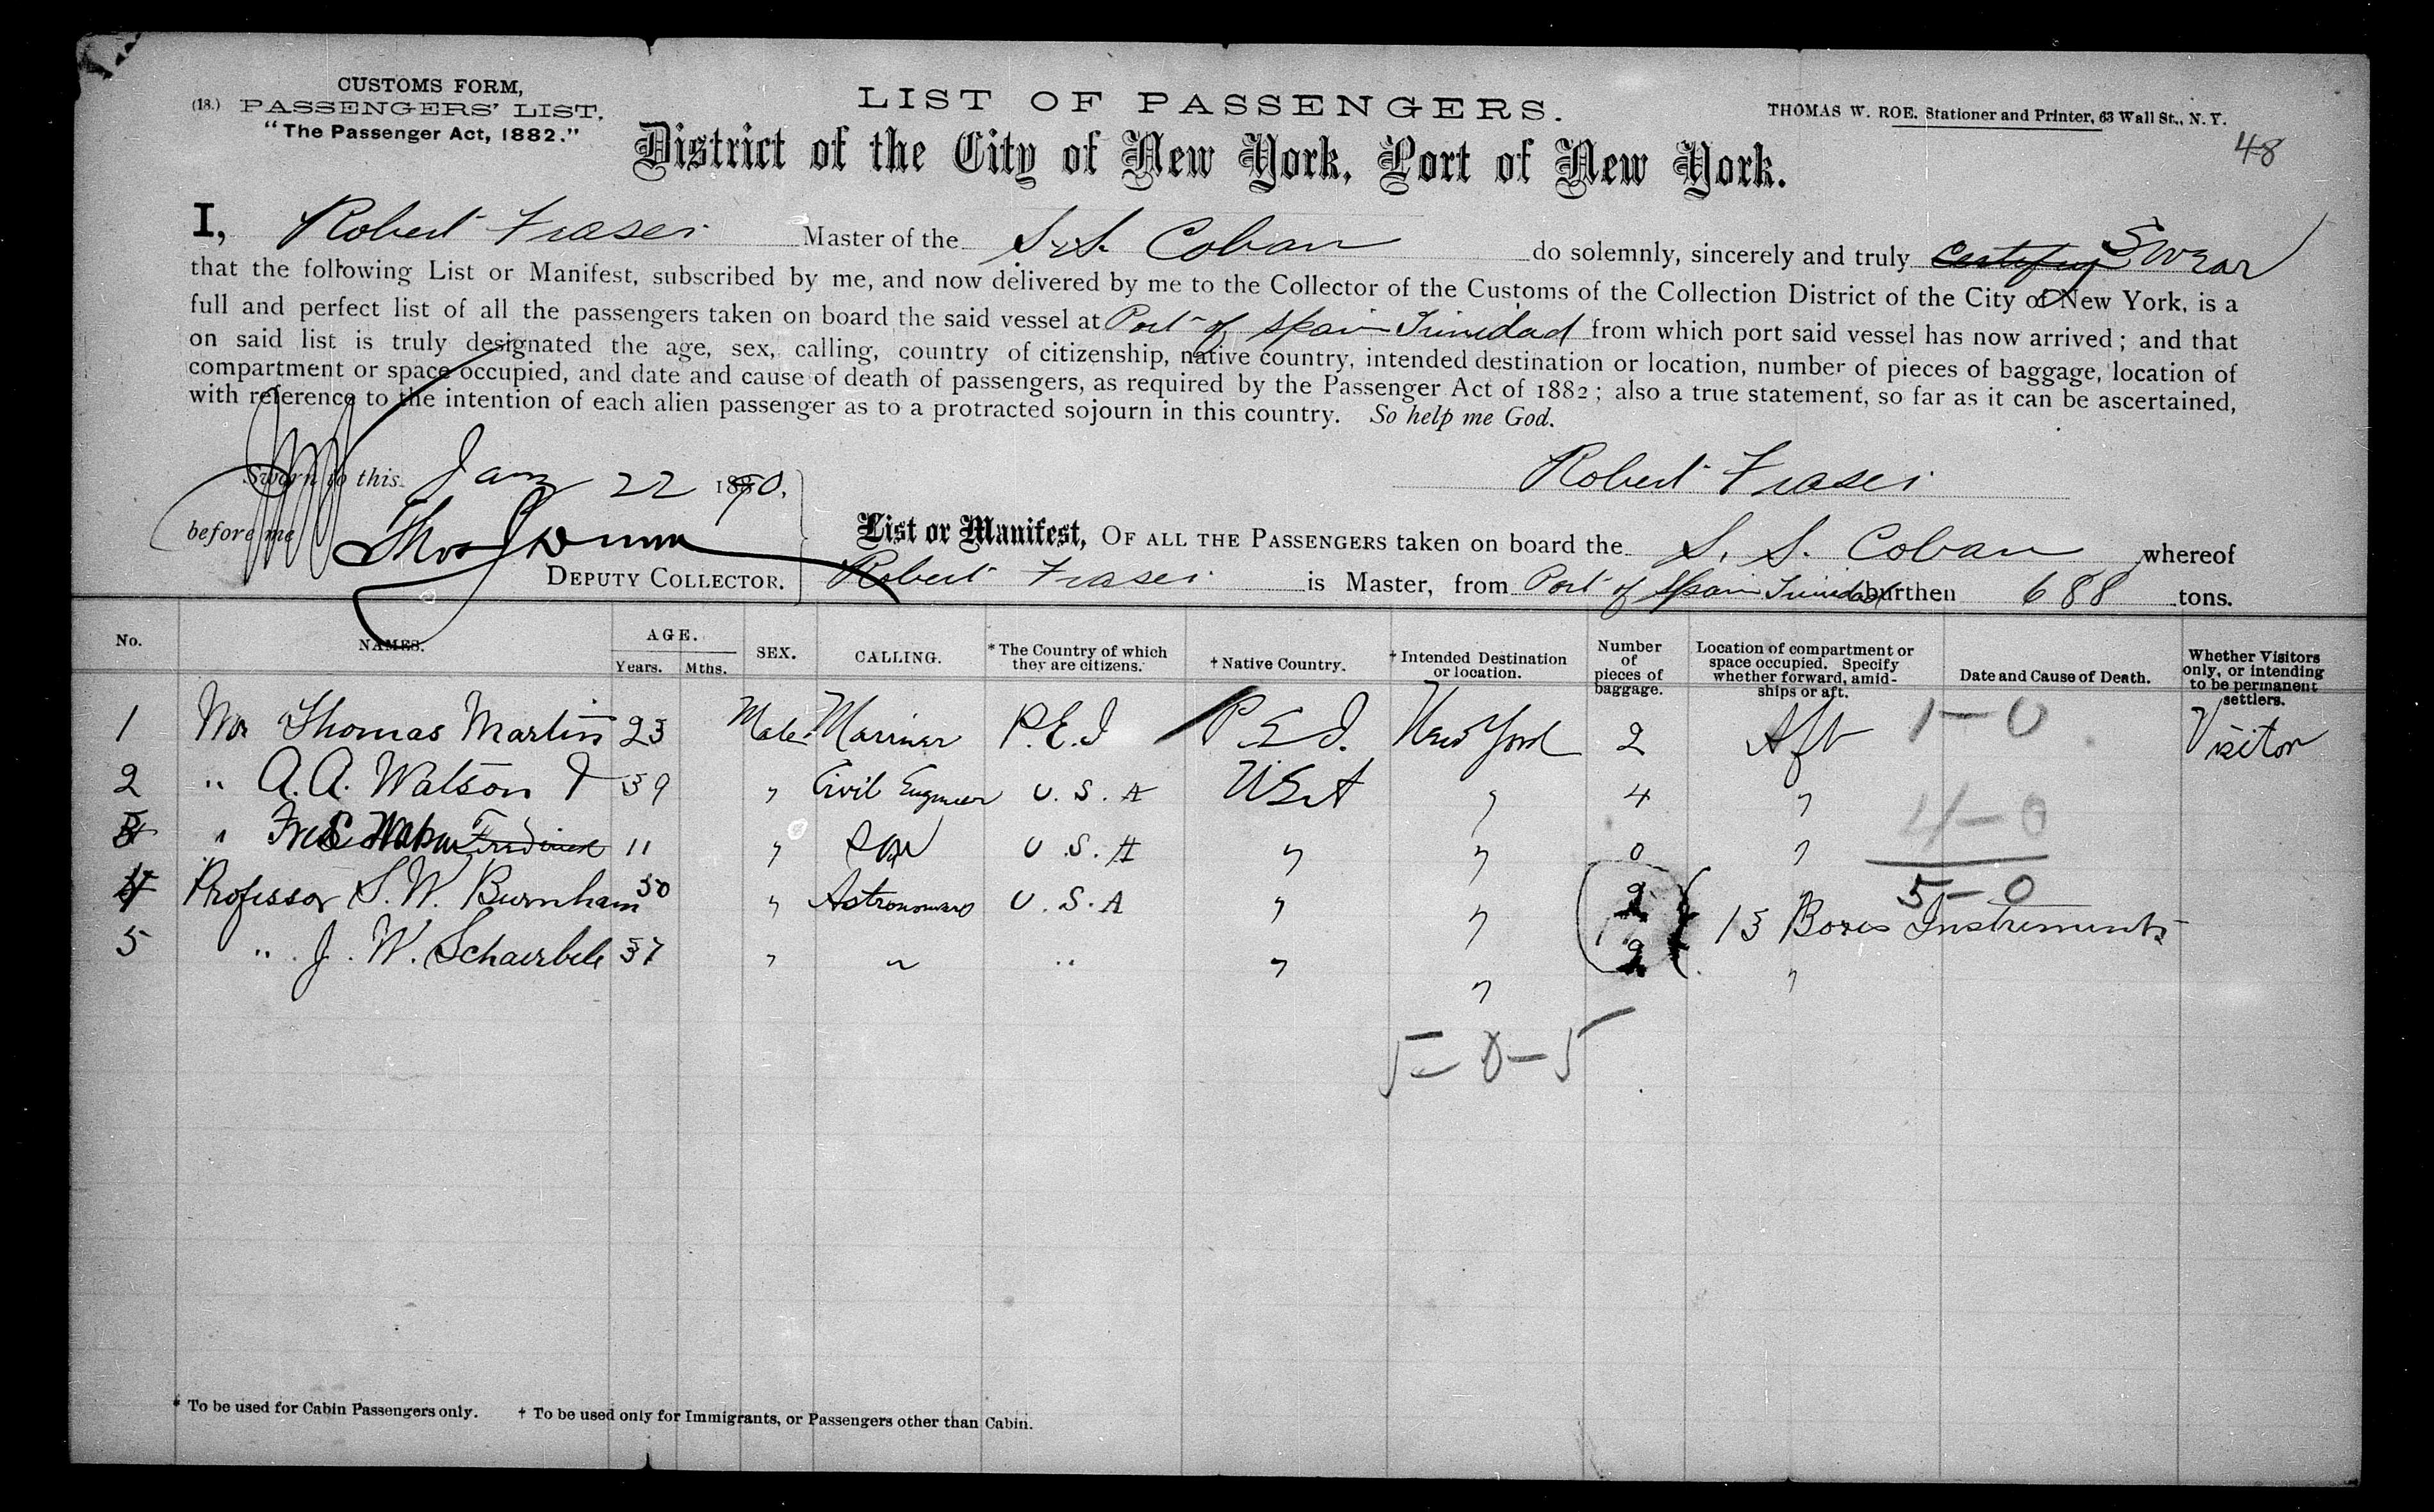 CUSTOMS FORM,
(18.) PASSENGERS' LIST.
"The Passenger Act, 1882."
LIST OF PASSENGERS.
THOMAS W. ROE. Stationer and Printer, 63 Wall St., N. Y.
48
District of the City of New York, Port of New York.
I, Robert Fraser Master of the S.S. Coban do solemnly, sincerely and truly certify Swear
that the following List or Manifest, subscribed by me, and now delivered by me to the Collector of the Customs of the Collection District of the City of New York, is a
full and perfect list of all the passengers taken on board the said vessel at Port of Spain Trinidad from which port said vessel has now arrived; and that
on said list is truly designated the age, sex, calling, country of citizenship, native country, intended destination or location, number of pieces of baggage, location of
compartment or space occupied, and date and cause of death of passengers, as required by the Passenger Act of 1882; also a true statement, so far as it can be ascertained,
with reference to the intention of each alien passenger as to a protracted sojourn in this country. So help me God.
Sworn to this Jany 22 1890,
Robert Fraser
before me Thos Dunn
DEPUTY COLLECTOR.
List or Manifest, OF ALL THE PASSENGERS taken on board the S. S. Coban whereof
Robert Fraser is Master, from Port of Spain Trinidad burthen 688 tons.
No. NAMES. AGE. Years. Mths. SEX. CALLING. *The Country of which they are citizens. †Native Country. †Intended Destination or location. Number of pieces of baggage. Location of compartment or space occupied. Specify whether forward, amidships or aft. Date and Cause of Death. Whether Visitors only, or intending to be permanent settlers.
1 Mr Thomas Martin 23 Male Mariner P.E.I P.E.I. New York 2 Aft 1-0 Visitor
2 " A. A. Watson 39 " Civil Engineer U.S.A USA " 4 " 4-0
3 " Fred 11 " U.S.A " " 0 "
5-0
4 Professor S. W. Burnham 50 " Astronomers U.S.A " " 2 13 Boxes Instruments
5 " J. W. Schaerbele 37 " " " " " 2 "
5-0-5
* To be used for Cabin Passengers only. † To be used only for Immigrants, or Passengers other than Cabin.